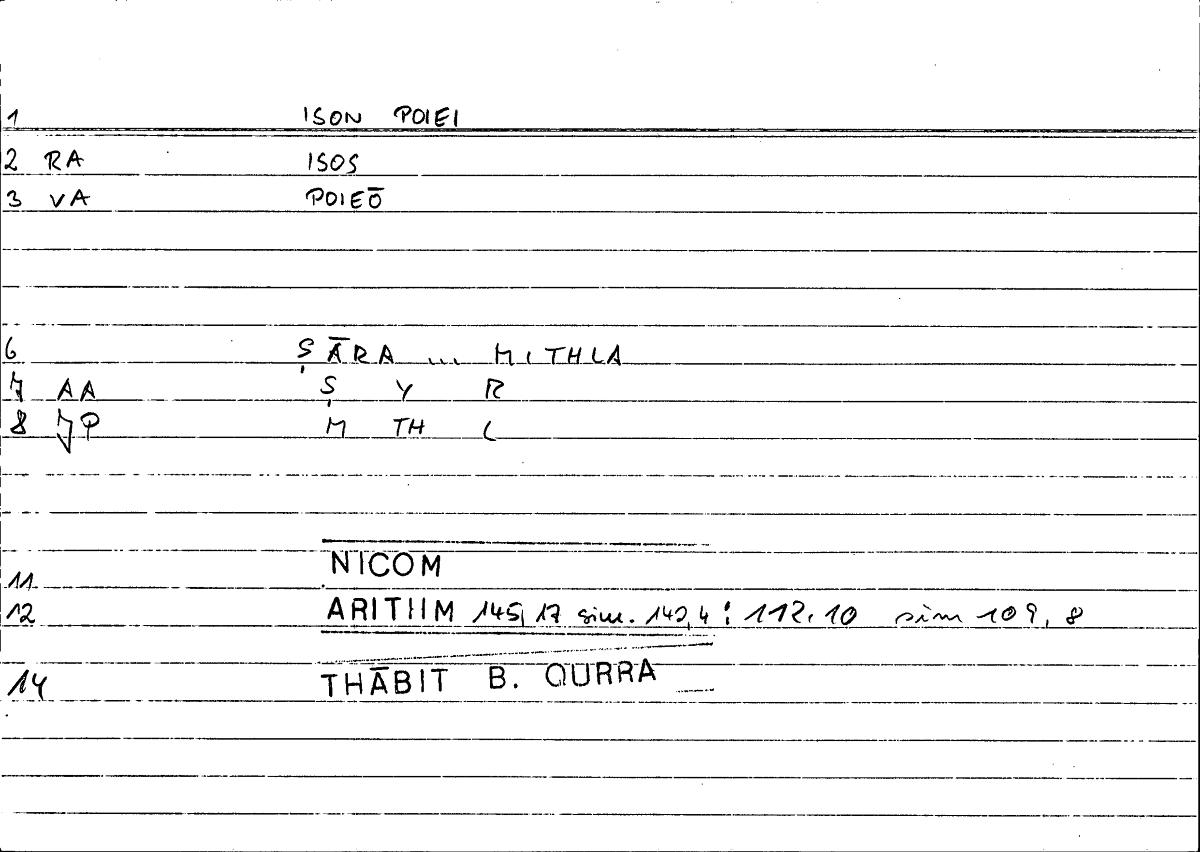 1 ISON POIEI
2 RA ISOS
3 VA POIEŌ
6 ṢĀRA ... MITHLA
7 AA Ṣ Y R
8 JP M TH L
11 NICOM
12 ARITHM 145,17 sim. 142,4 : 112.10 sim 109,8
14 THĀBIT B. QURRA